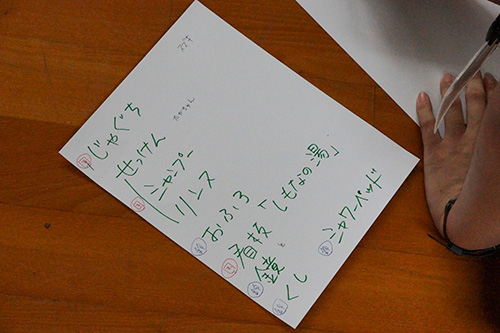 じゃぐち
せっけん
シャンプー
リンス
おふろ
看板「しもなの湯」
鏡
くし
シャワーヘッド